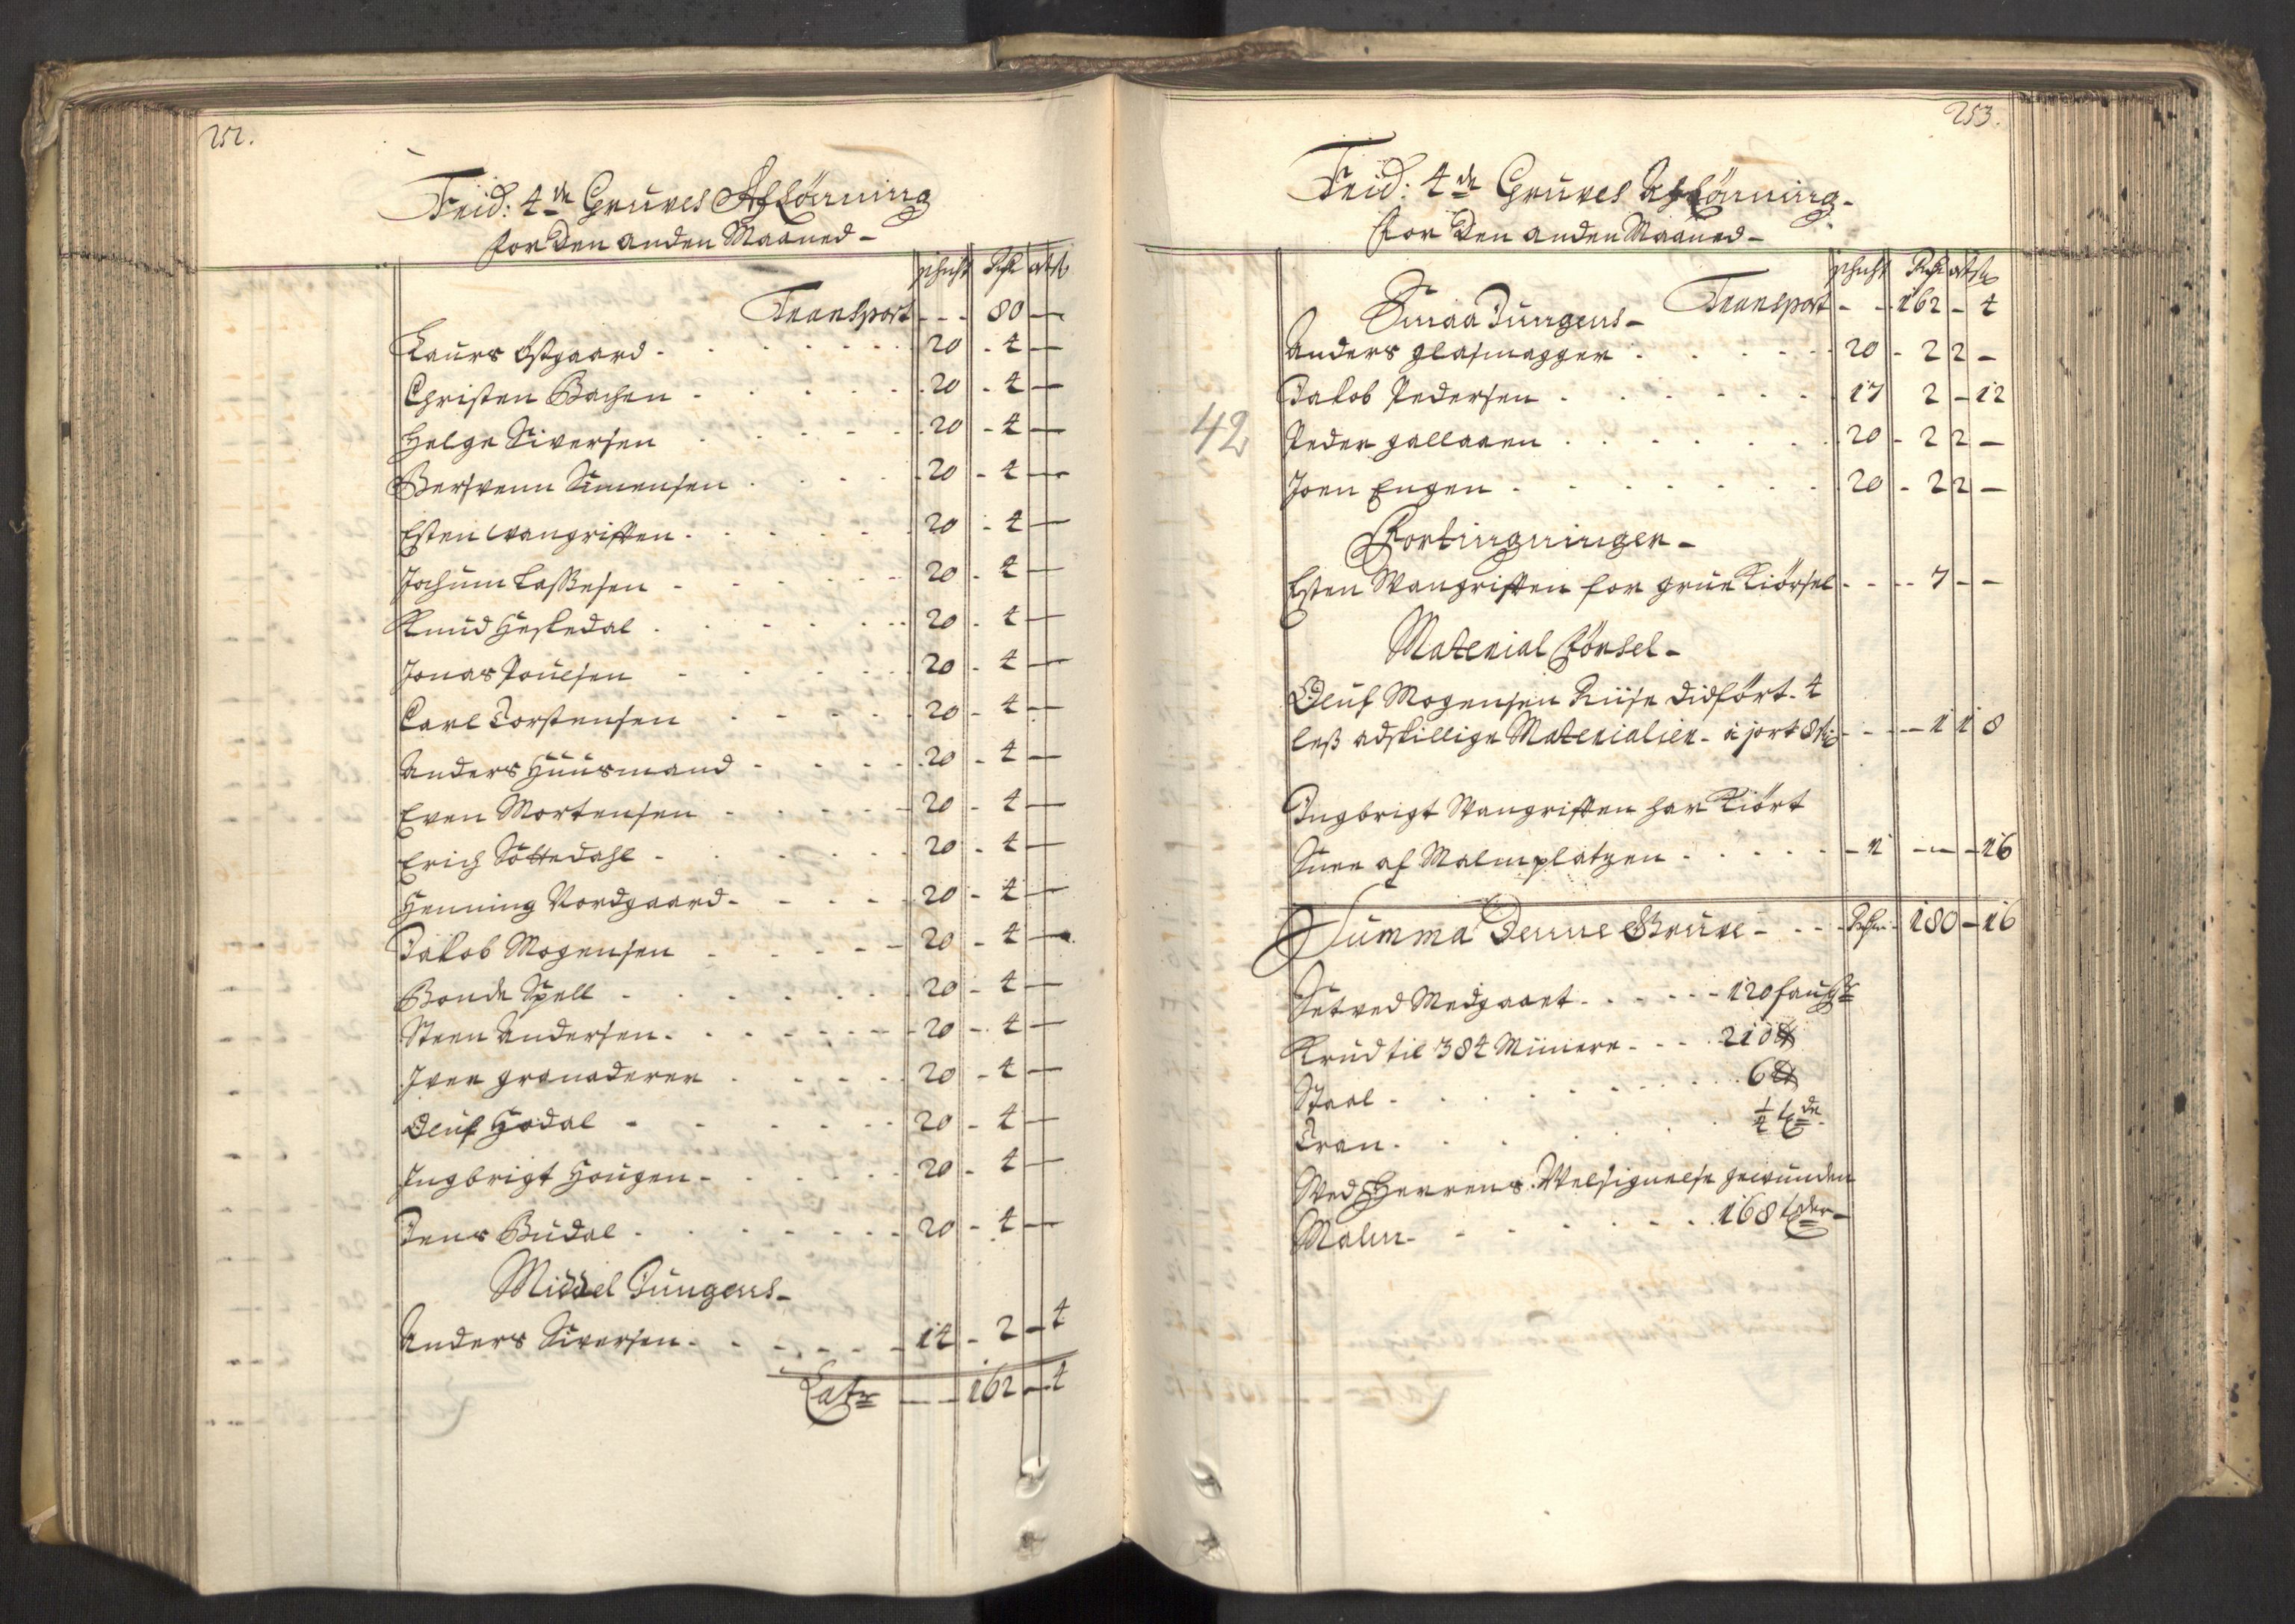 252.
Frid: 4de Gruves Aflönning
for Den anden Maaned -
schicht Rdr ort ß
Transport - - - 80 -
Laurs Östgaard - 20 - 4 -
Christen Bachen - 20 - 4 -
Helge Siversen - 20 - 4 -
Bersvenn Simensen - 20 - 4 -
Esten Wangrifften - 20 - 4 -
Jochum Lassesen - 20 - 4 -
Knud Hesledal - 20 - 4 -
Jonas Pouelsen - 20 - 4 -
Carl Torstensen - 20 - 4 -
Anders Huusmand - 20 - 4 -
Even Mortensen - 20 - 4 -
Erich Sottedahl - 20 - 4 -
Henning Nordgaard - 20 - 4 -
Jakob Mogensen - 20 - 4 -
Bonde Spell - 20 - 4 -
Steen Andersen - 20 - 4 -
Iver granaderer - 20 - 4 -
Oluf Hodal - 20 - 4 -
Ingbrigt Hougen - 20 - 4 -
Jens Budal - 20 - 4 -
Middel Jungens -
Anders Siversen - 14 - 2 - 4
Latr - - 162 - 4
253.
Frid: 4de Gruves Aflönning -
for Den anden Maaned -
schicht Rdr ort ß
Transport - - 162 - 4
Smaa Jungens -
Anders glasmagger - 20 - 2 2 -
Jakob Pedersen - 17 2 - 12
42
Peder gallaaen - 20 - 2 2 -
Joen Engen - 20 - 2 2 -
Fortingninger -
Esten Wangriften for grue Kiörsel - - - 7 - -
Material förhsel -
Oluf Mogensen Riise didfört 4
less adskillige Materialier - a jort 8 - - - 1 1 8
Ingbrigt Wangriften har Kiört
Snee af Malmplatzen - 1 - - 16
Summa Denne Gruve - - - Rdr 180 - 16
Setved Medgaaet - 120 faugr
Krud til 384 Miinere - 210 ℔
Staal - 6 ℔
Tran - ¼ tde
Ved Herrens Velsignelse gewunden
Malm - 168 tder -